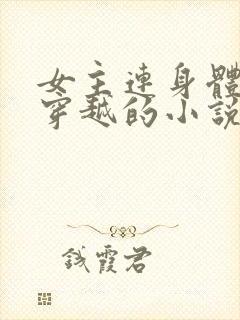 女主連身體
穿越的小說
錢霞君